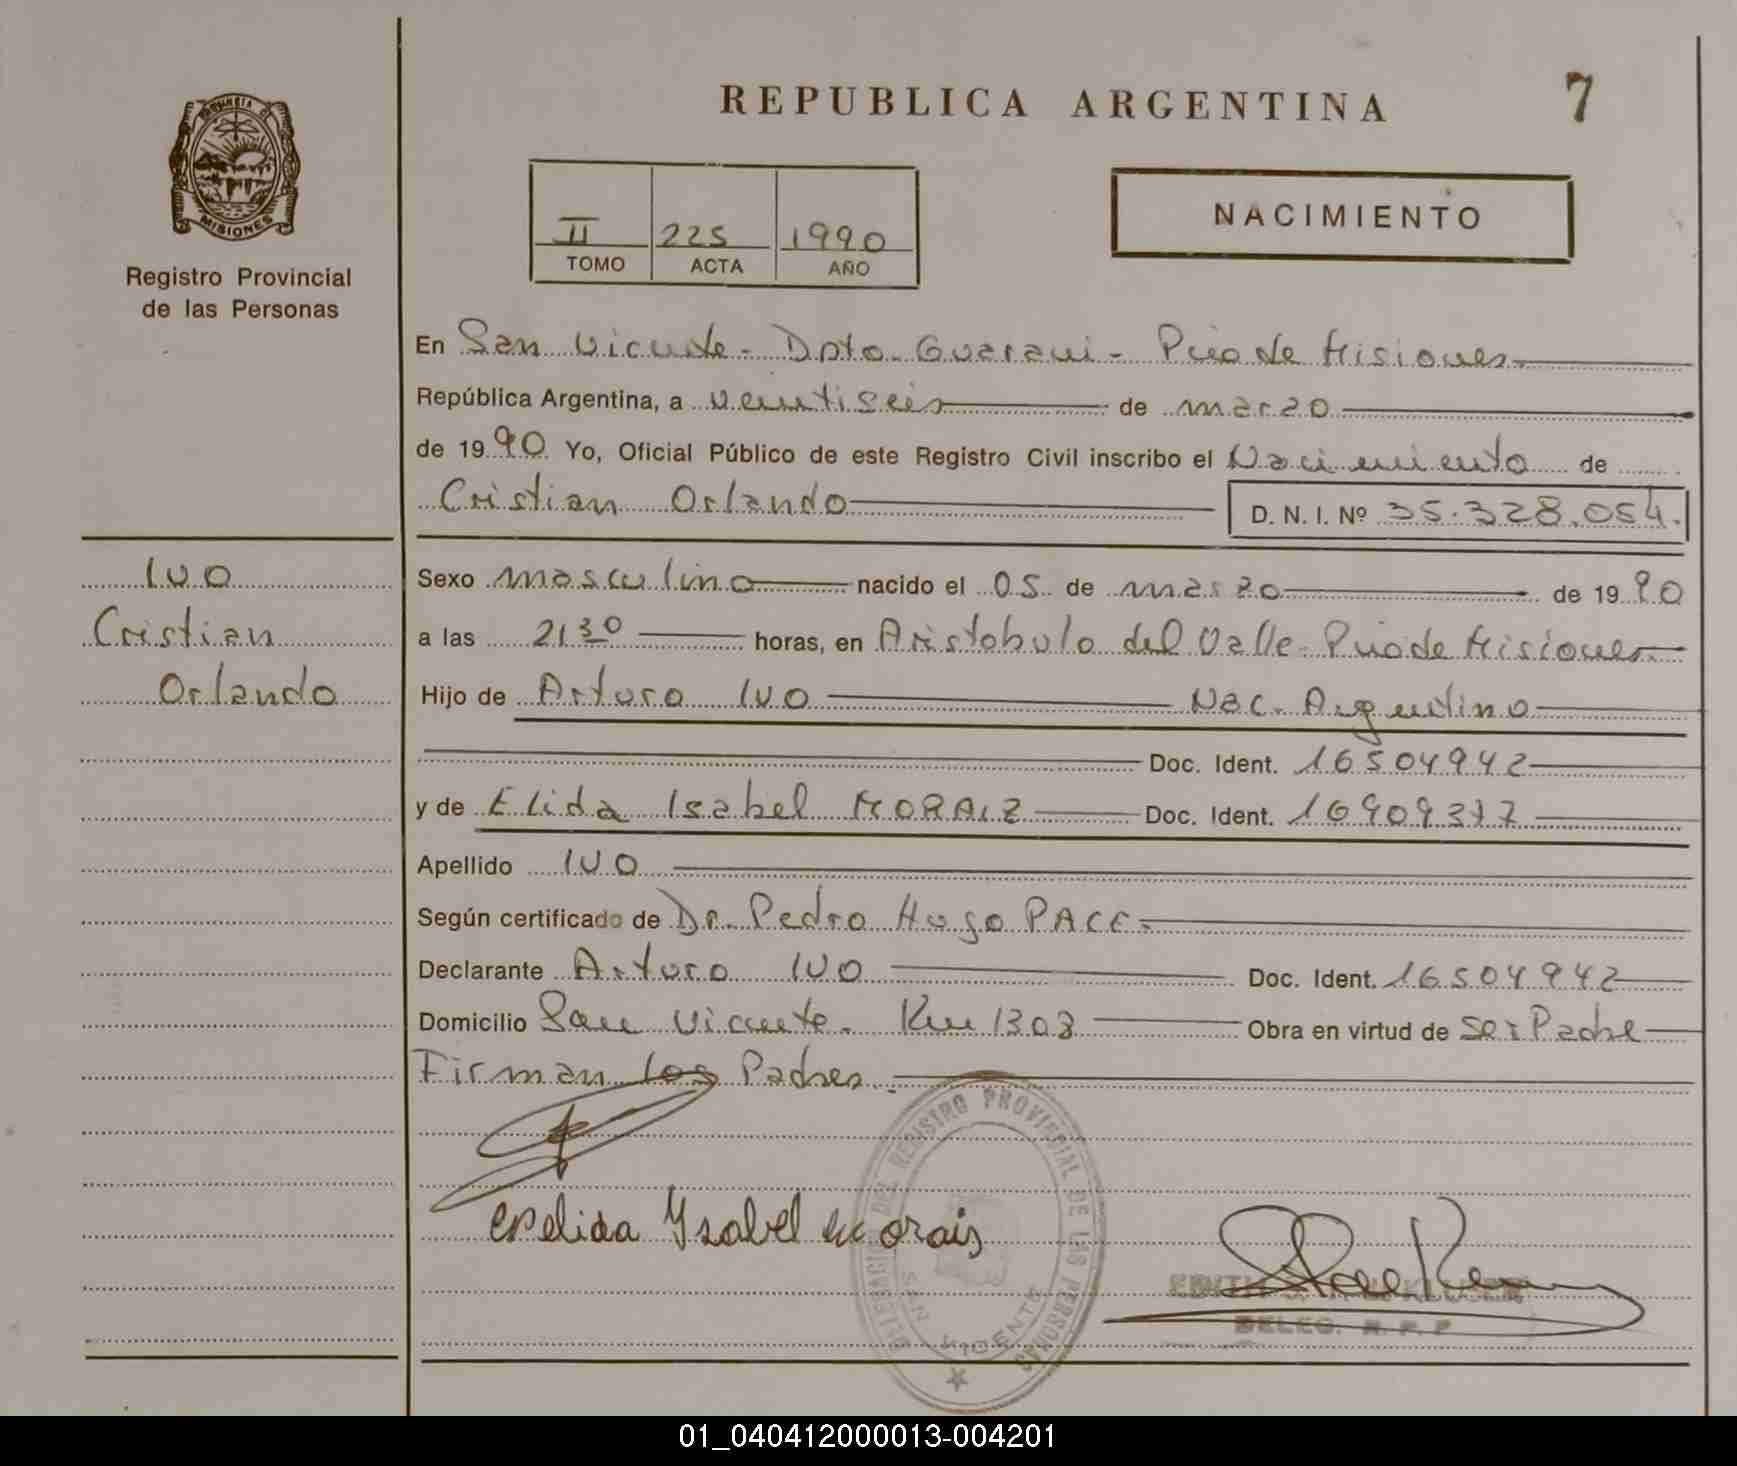 REPUBLICA ARGENTINA
7
MISIONES
Registro Provincial
de las Personas
II 225 1990
TOMO ACTA AÑO
NACIMIENTO
En San Vicente - Dpto. Guarani - Pcia de Misiones
República Argentina, a veintiseis de marzo
de 1990 Yo, Oficial Público de este Registro Civil inscribo el Nacimiento de
Cristian Orlando D. N. I. Nº 35.328.054.
IVO
Cristian
Orlando
Sexo masculino nacido el 05 de marzo de 1990
a las 21 30 horas, en Aristobulo del Valle - Pcia de Misiones
Hijo de Arturo IVO Nac. Argentino
Doc. Ident. 16504942
y de Elida Isabel MORAIZ Doc. Ident. 16909377
Apellido IVO
Según certificado de Dr. Pedro Hugo PACE
Declarante Arturo IVO Doc. Ident. 16504942
Domicilio San Vicente. Km 1303 Obra en virtud de ser Padre
Firman los Padres.
Isabel morais
DELEGACION DEL REGISTRO PROVINCIAL DE LAS PERSONAS
SAN VICENTE
EDITH
DELEG. R. P. P
01_040412000013-004201